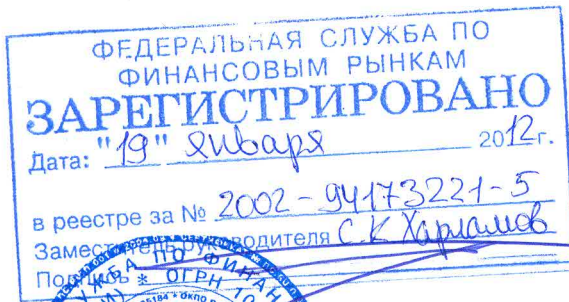 ФЕДЕРАЛЬНАЯ СЛУЖБА ПО
ФИНАНСОВЫМ РЫНКАМ
ЗАРЕГИСТРИРОВАНО
Дата: "19" января 2012г.
в реестре за № 2002-94173221-5
Заместитель руководителя С.К Харламов
Подпись
ОГРН